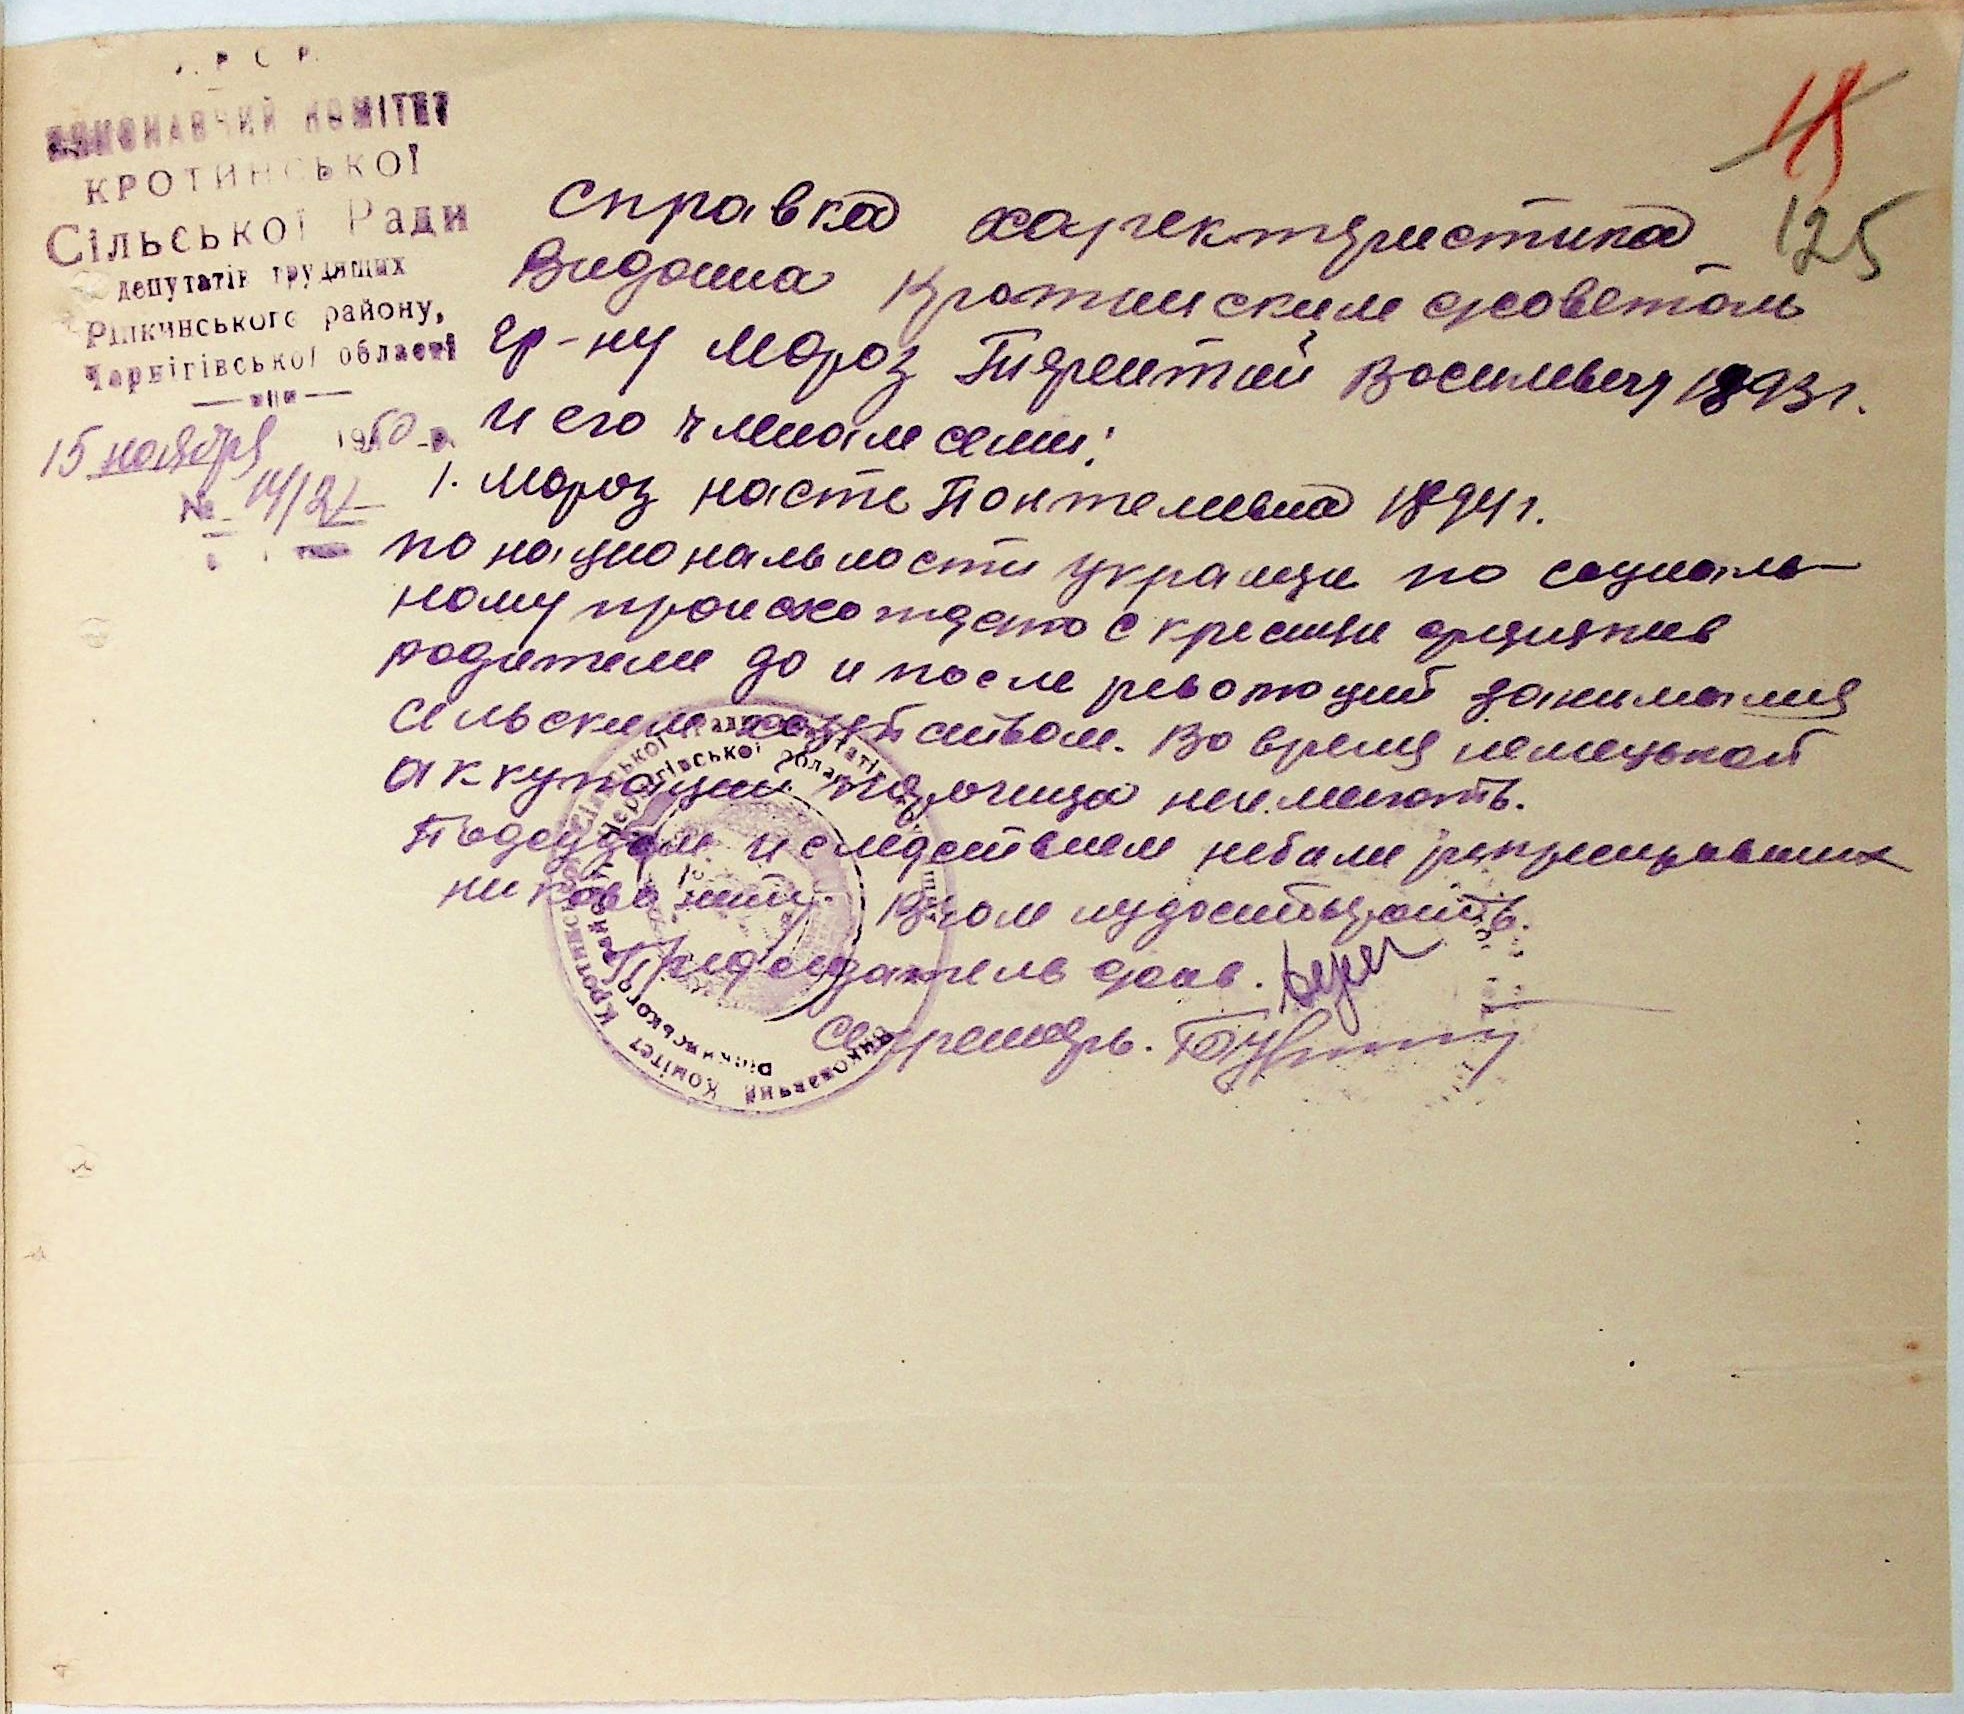 У.Р.С.Р.
ВИКОНАВЧИЙ КОМІТЕТ
КРОТИНСЬКОЇ
Сільської Ради
депутатів трудящих
Ріпкинського району,
Чернігівської області
15 ноября 1950 р.
№ 14/121
15
125
Справка характяристика
Видана Кротинским с/советом
гр-ну Мороз Тярентий Василевич 1893 г.
и его членам семи:
1. Мороз Насте Понтелевна 1894 г.
по национальности украинци по социаль-
ному происхождению с кресиян средняков
родители до и после революций занимались
сельским хозяйством. Во время немецькой
аккупации нечиво неимеють.
Под судом и следствием небили рипрещованих
никово нет. В чом и удостовіряить.
Председатель с/сов.
Секретарь.
Виконавчий Комітет Кротинської Сільської Ради депутатів трудящих
Ріпкинського району Чернігівської області